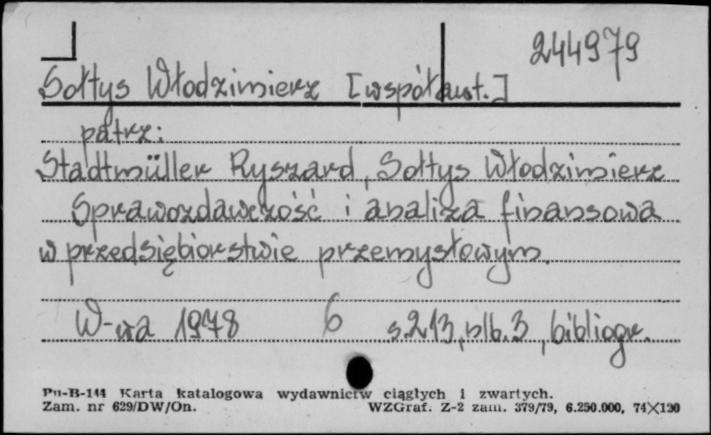 244979
Sołtys Włodzimierz [współaut.]
patrz:
Stadtmüller Ryszard, Sołtys Włodzimierz
Sprawozdawczość i analiza finansowa
w przedsiębiorstwie przemysłowym.
W-wa 1978 6 s.213, nlb.3, bibliogr.
Pu-B-144 Karta katalogowa wydawnictw ciągłych i zwartych.
Zam. nr 629/DW/On. WZGraf. Z-2 zam. 379/79, 6.250.000, 74×120